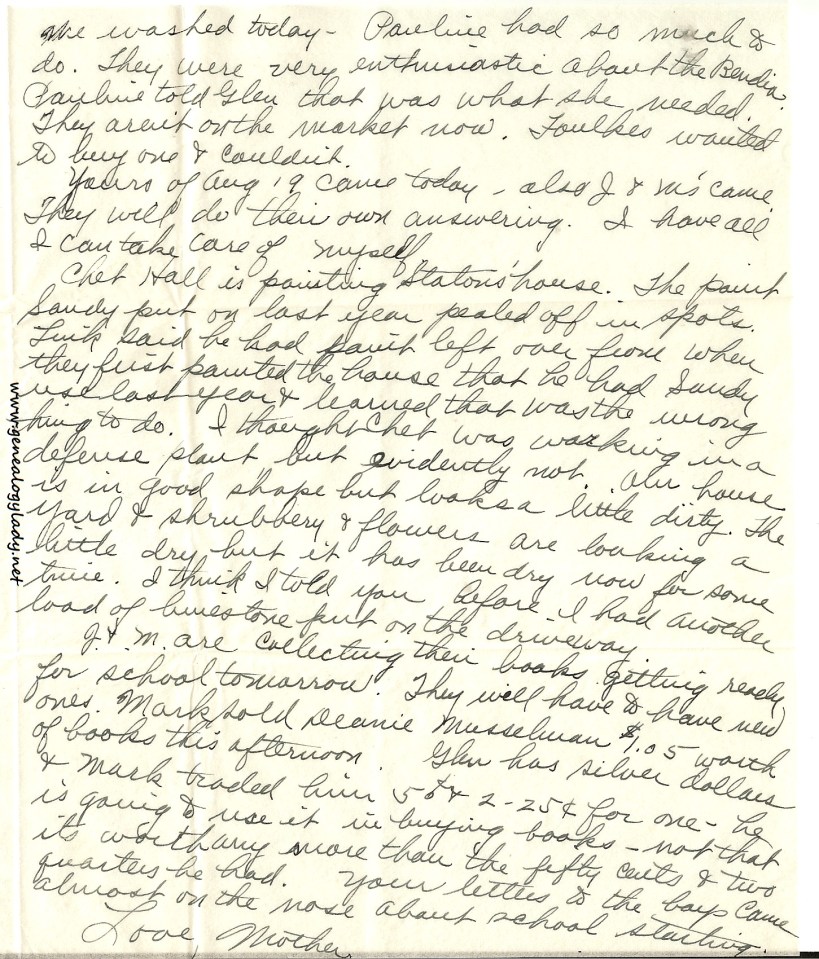 We washed today - Pauline had so much to
do. They were very enthusiastic about the Bendix.
Pauline told Glen that was what she needed.
They aren't on the market now. Foulkes wanted
to buy one & couldn't.
Yours of Aug 19 came today - also J & M's came.
They will do their own answering. I have all
I can take care of myself.
Chet Hall is painting Statons' house. The paint
Sandy put on last year pealed off in spots.
Tink said he had paint left over from when
they first painted the house that he had Sandy
use last year & learned that was the wrong
thing to do. I thought Chet was working in a
defense plant but evidently not. Our house
is in good shape but looks a little dirty. The
yard & shrubbery & flowers are looking a
little dry but it has been dry now for some
time. I think I told you before I had another
load of limestone put on the driveway.
J. & M. are collecting their books getting ready
for school tomorrow. They will have to have new
ones. Mark sold Deanie Musselman $1.05 worth
of books this afternoon. Glen has silver dollars
& Mark traded him 50¢ & 2-25¢ for one - he
is going to use it in buying books - not that
it's worth any more than the fifty cents & two
quarters he had. Your letters to the boys came
almost on the nose about school starting.
Love, Mother
www.genealogylady.net